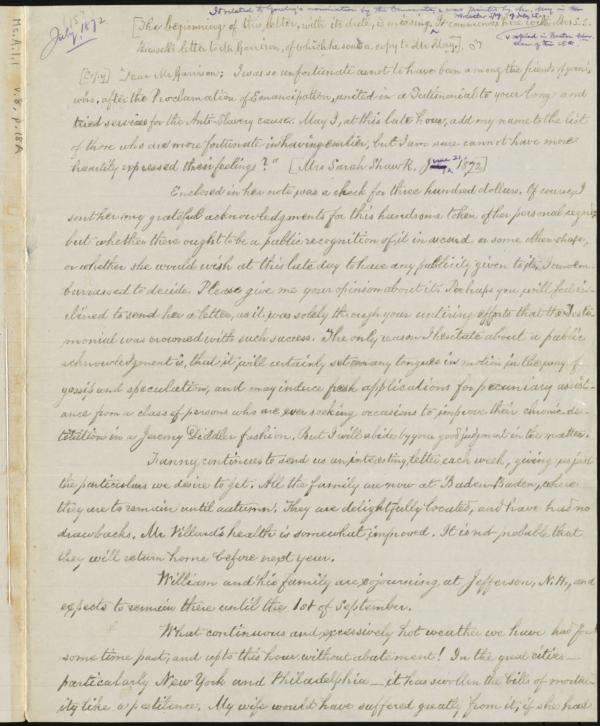 July 15, 1872
It related to Greeley's nomination by the Democrats & was printed by Mr. May in the
[The beginning of this letter, with its date, is missing. It commences here with Mrs. S. S.
Russell's letter to Mr. Garrison, of which he sends a copy to Mr. May.]
& copied in Boston
Ms. A. 1. 1 v. 8, p. 18A
[Copy] "Dear Mr. Garrison: I was so unfortunate as not to have been among the friends of yours,
who, after the Proclamation of Emancipation, united in a Testimonial to your long and
tried services for the Anti-Slavery cause. May I, at this late hour, add my name to the list
of those who are more fortunate in having earlier, but I am sure cannot have more
heartily expressed their feelings?" [Mrs Sarah Shaw R. June 21, 1872.]
Enclosed in her note was a check for three hundred dollars. Of course, I
sent her my grateful acknowledgments for this handsome token of her personal regard;
but whether there ought to be a public recognition of it in accord or some other shape,
or whether she would wish at this late day to have any publicity given to it, I am em-
barrassed to decide. Please give me your opinion about it. Perhaps you will feel in-
clined to send her a letter, as it was solely through your untiring efforts that the Testi-
monial was crowned with such success. The only reason I hesitate about a public
acknowledgment is, that it will certainly set many tongues in motion in the way of
gossip and speculation, and may induce fresh applications for pecuniary assist-
ance from a class of persons who are ever seeking occasions to improve their chronic des-
titution in a Jeremy Diddler fashion. But I will abide by your good judgment in the matter.
Fanny continues to send us an interesting letter each week, giving us just
the particulars we desire to get. All the family are now at Baden-Baden, where
they are to remain until autumn. They are delightfully located, and have had no
drawbacks. Mr. Villard's health is somewhat improved. It is not probable that
they will return home before next year.
William and his family are sojourning at Jefferson, N. H., and
expects to remain there until the 1st of September.
What continuous and excessively hot weather we have had for
some time past, and up to this hour without abatement! In the great cities—
particularly New York and Philadelphia—it has swollen the bills of mortal-
ity like a pestilence. My wife would have suffered greatly from it, if she had